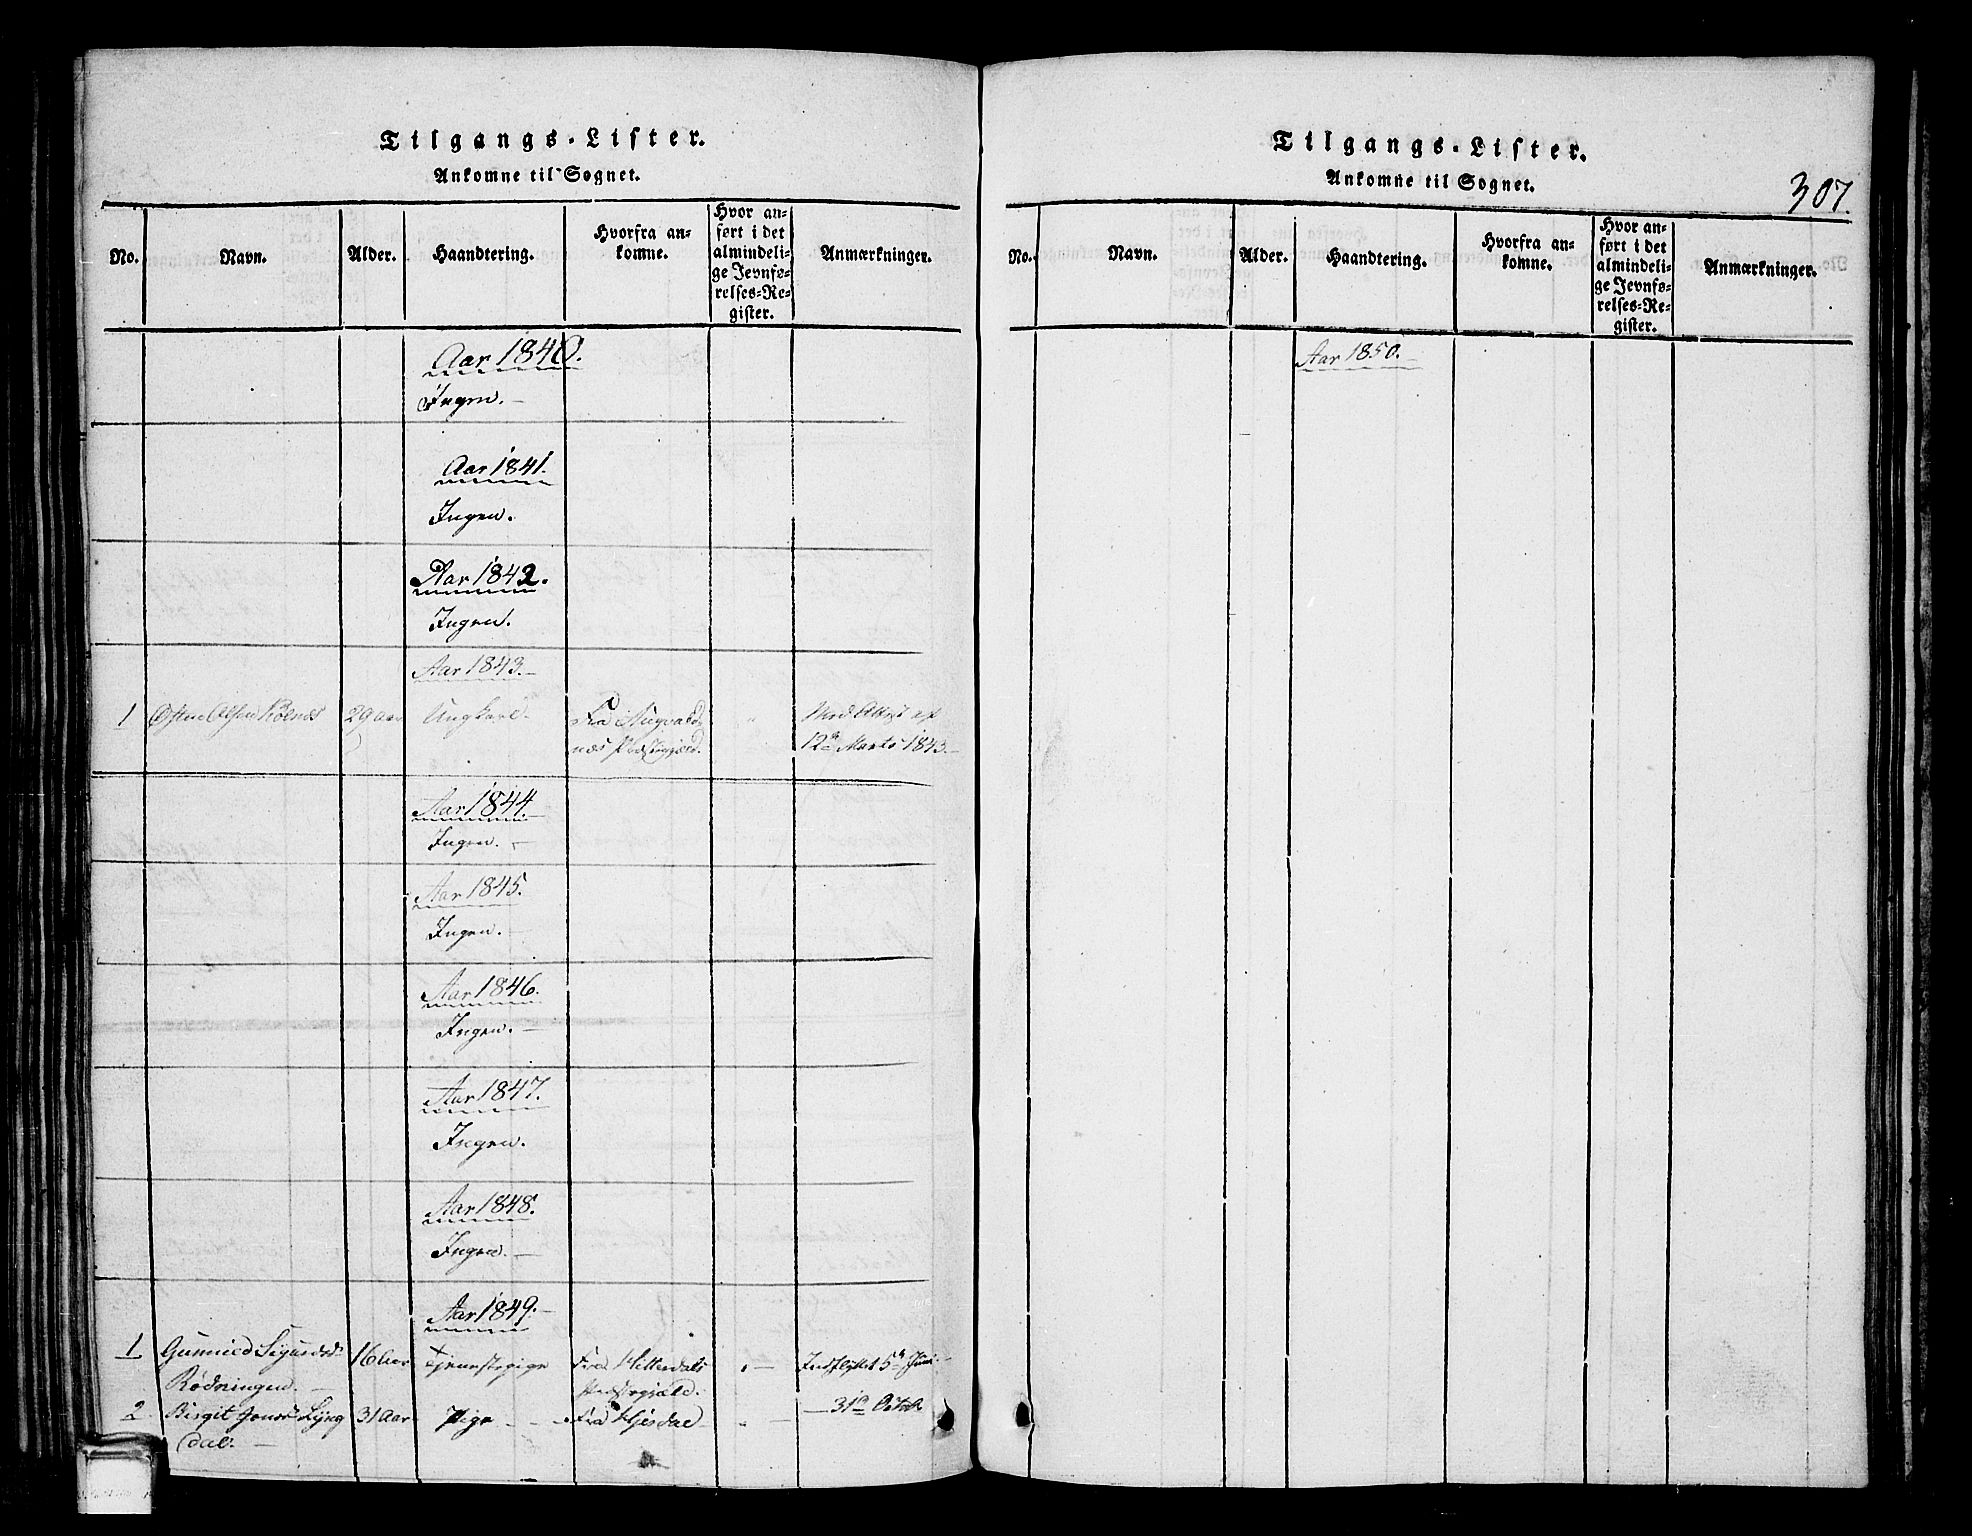 Tilgangs-Lister.
Ankomne til Sognet.
No.
Navn.
Alder.
Haandtering.
Hvorfra an-
komne.
Hvor an-
ført i det
almindeli-
ge Jevnfø-
relses-Re-
gister.
Anmærkninger.
Aar 1840.
Ingen.
Aar 1841.
Ingen.
Aar 1842.
Ingen.
Aar 1843.
1 Østen Olsen 29 Aar Ungkarl. Fra Augvalds- " Med Attest af
næs Præstegjeld. 12te Marts 1843.
Aar 1844.
Ingen.
Aar 1845.
Ingen.
Aar 1846.
Ingen.
Aar 1847.
Ingen.
Aar 1848.
Ingen.
Aar 1849.
1 Gunnild Sigurdsd: 16 Aar Tjenestepige Fra Hitterdals " Indflyttet 5te Juni
Rødningen. Præstegjeld.
2 Birgit Jonsd: Lyng 31 Aar Pige Fra Hjerdal " 31te Octob
dal.
Tilgangs-Lister.
Ankomne til Sognet.
307.
No.
Navn.
Alder.
Haandtering.
Hvorfra an-
komne.
Hvor an-
ført i det
almindeli-
ge Jevnfø-
relses-Re-
gister.
Anmærkninger.
Aar 1850.